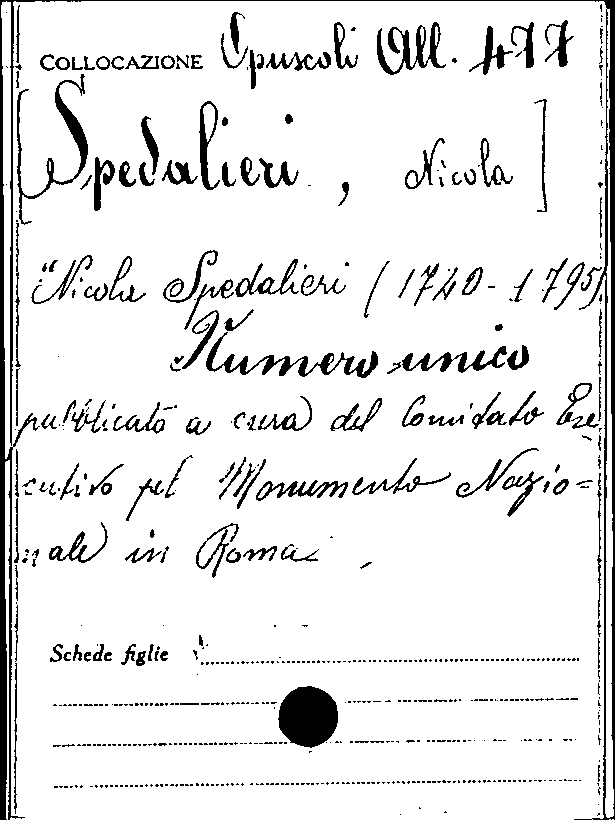 COLLOCAZIONE Opuscoli All. 477
[Spedalieri, Nicola]
"Nicola Spedalieri (1740-1795).
Numero unico
pubblicato a cura del Comitato Ese
cutivo pel Monumento Nazio=
nale in Roma.
Schede figlie